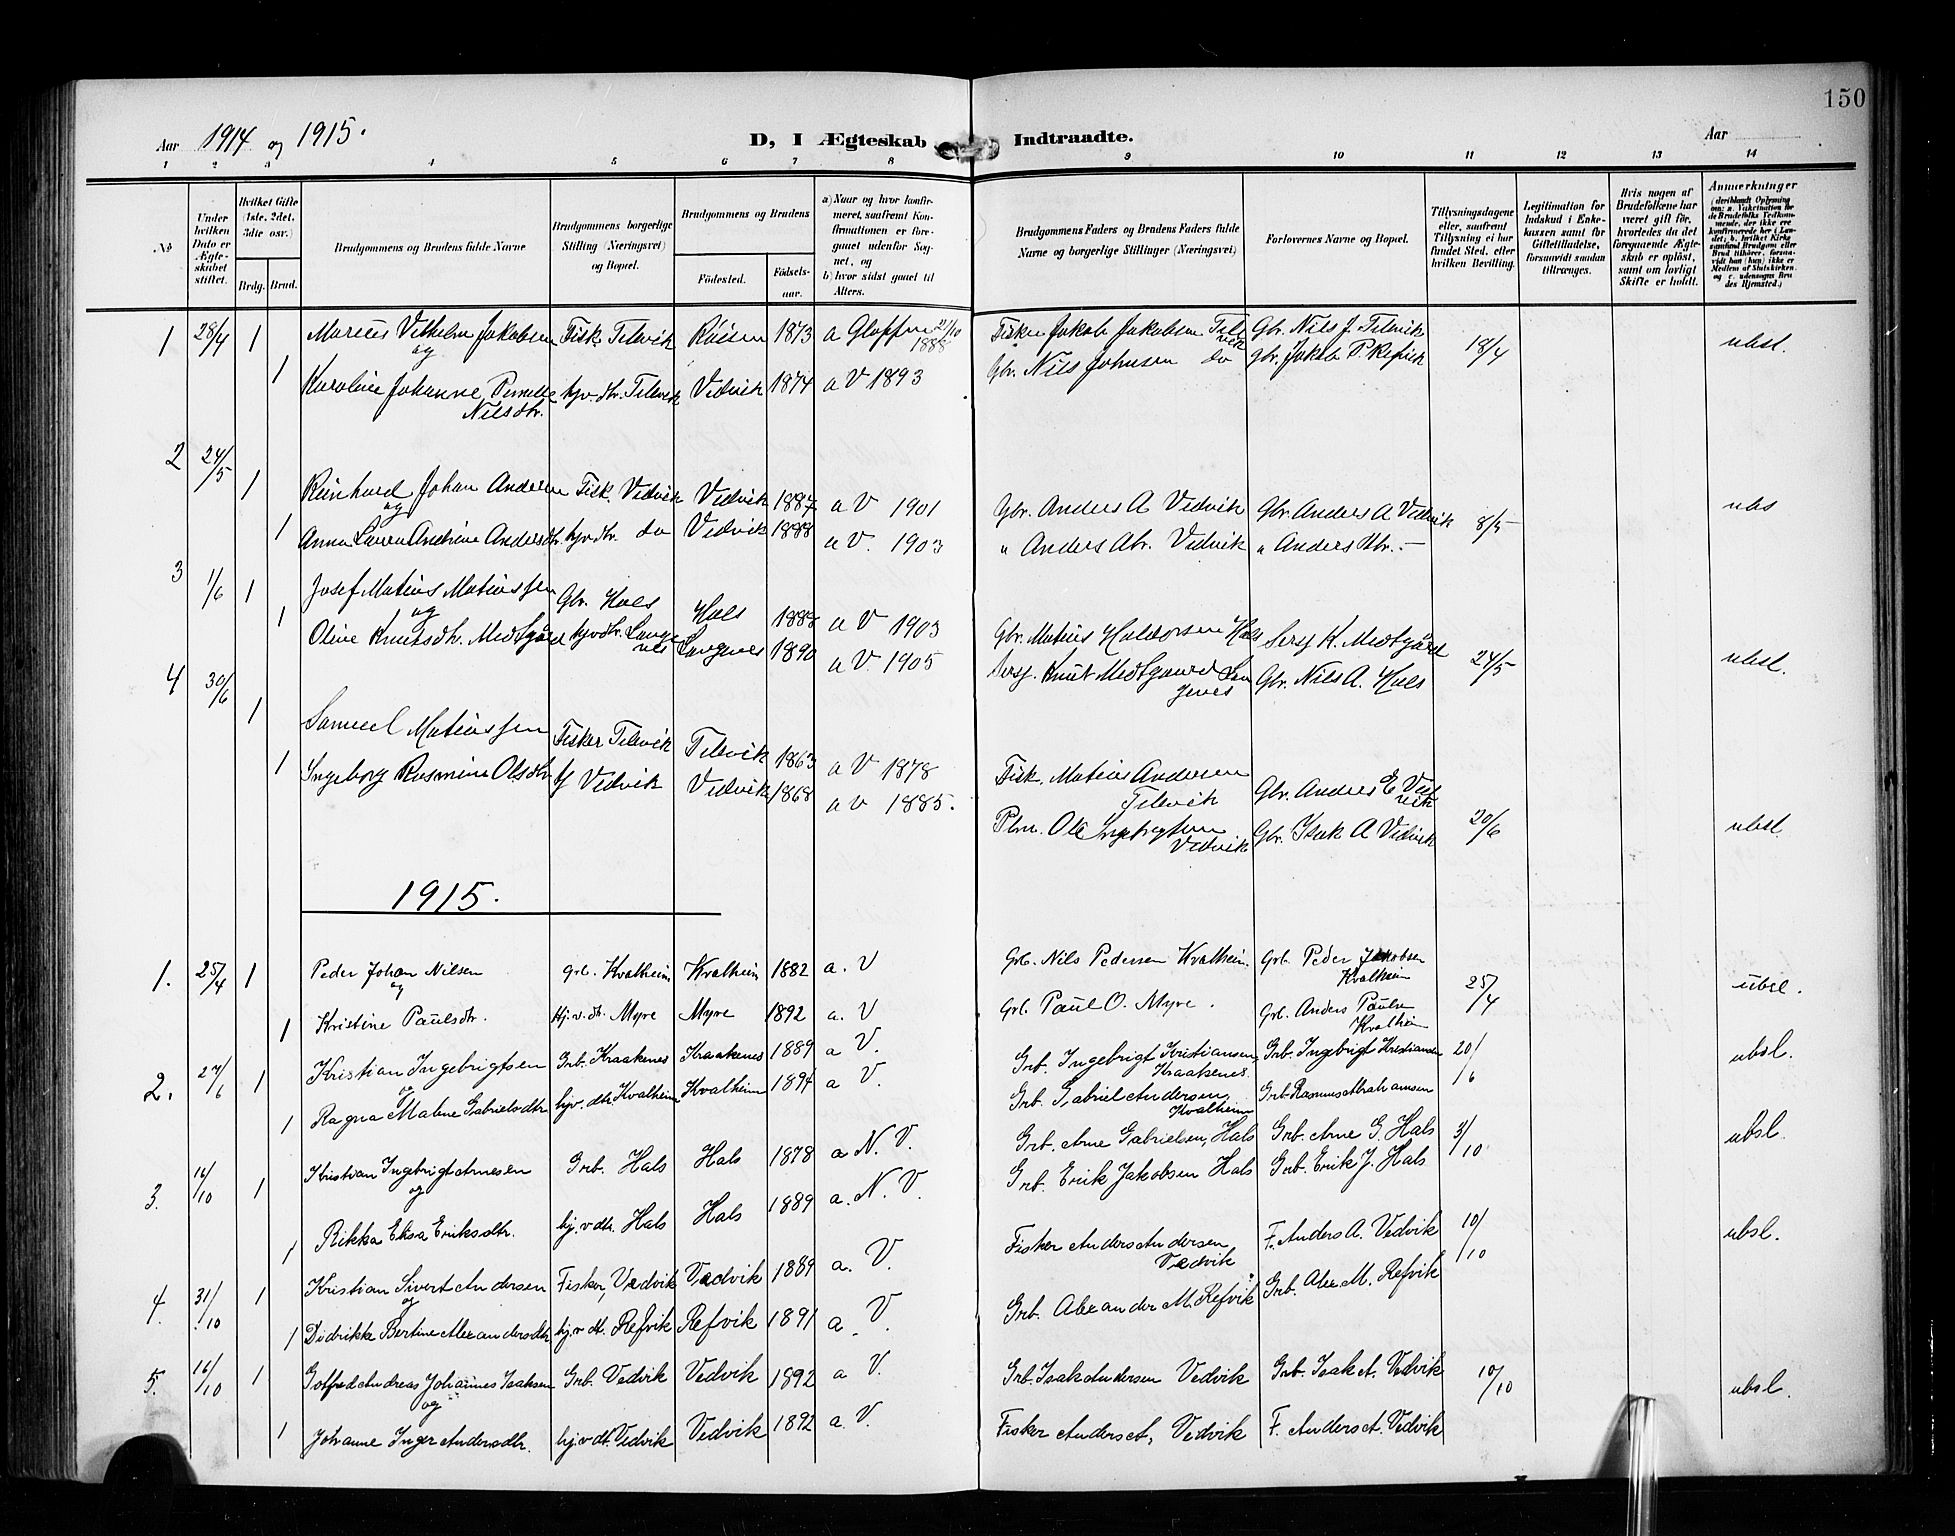 150
Aar 1914 og 1915.
D, I Ægteskab Indtraadte.
Aar
1 2 3 4 5 6 7 8 9 10 11 12 13 14
No
Under hvilken Dato er Ægteskabet stiftet.
Hvilket Gifte (1ste, 2det, 3die osv.)
Brdg. Brud.
Brudgommens og Brudens fulde Navne
Brudgommens borgerlige Stilling (Næringsvei) og Bopæl.
Brudgommens og Brudens
Fødested. Fødselsaar.
a) Naar og hvor konfirmeret, saafremt Konfirmationen er foregaaet udenfor Sognet, og
b) hvor sidst gaaet til Alters.
Brudgommens Faders og Brudens Faders fulde Navne og borgerlige Stillinger (Næringsvei)
Forlovernes Navne og Bopæl.
Tillysningsdagene eller, saafremt Tillysning ei har fundet Sted, efter hvilken Bevilling.
Legitimation for Indskud i Enkekassen samt for Giftetilladelse, forsaavidt saadan tiltrænges.
Hvis nogen af Brudefolkene har været gift før, hvorledes da det foregaaende Ægteskab er opløst, samt om lovligt Skifte er holdt.
Anmerkninger
1 28/4 1 Marius Vilhelm Jakobsen Fisk. Tilevik Röisen 1873 a Gloppen 21/10 1888 Fisker Jakob Jakobsen Tilevik Gbr. Nils J. Tilevik 18/4 ubsl.
og
1 Karoline Johanne Pernille Nilsdtr. hjv. dtr. Tilevik Vedvik 1874 a V 1893 Gbr. Nils Johnsen do Gbr. Jakob P. Refvik
2 24/5 1 Reinhard Johan Andersen Fisk. Vedvik Vedvik 1887 a V 1901 Gbr. Anders A Vedvik Gbr. Anders A Vedvik 8/5 ubs
og
1 Anna Andrine Andersdtr. hjvdtr. do Vedvik 1888 a V. 1903 " Anders Abr. Vedvik " Anders Abr. -
3 1/6 1 Josef Matius Matiassen Gbr. Hals Hals 1888 a V 1903 Gbr. Matias Haldorsen Hals Sersj K. Medtgård 24/5 ubsl.
og
1 Oline Knutsdtr. Medtgård hjvdtr. Langenes Langenes 1890 a V 1905 Sersj. Knut Medtgaard Langenes Gbr. Nils A. Hals
4 30/6 1 Samuel Matiassen Fisker Tilevik Tilevik 1863 a V 1878 Fisk. Matias Andersen Tilevik Gbr. Anders E Vedvik 20/6 ubsl.
1 Ingeborg Rasmine Olsdtr. Vedvik Vedvik 1868 a V 1885. Plm. Ole Ingebrigtsen Vedvik Gbr. Isak A Vedvik
1915.
1. 25/4 1 Peder Johan Nilsen Grb. Kvalheim Kvalheim 1882 a. V Grb. Nils Pedersen Kvalheim. Grb. Peder Jakobsen Kvalheim 25/4 ubsl.
og
1 Kristine Paulsdtr. hj.v.dtr. Myre Myre 1892 a. V Grb. Paul O. Myre. Grb. Anders Paulsen Kvalheim
2. 27/6 1 Kristian Ingebrigtsen Grb. Kraakenes Kraakenes 1889 a V. Grb. Ingebrigt Kristiansen Kraakenes. Grb. Ingebrigt Kristiansen 20/6 ubsl.
og
1 Ragna Malene Gabrielsdtr hjv. dtr. Kvalheim Kvalheim 1894 a V. Grb. Gabriel Andersen Kvalheim Grb. Rasmus Abrahamsen
3. 16/10 1 Kristian Ingebrigt Arnesen Grb. Hals Hals 1878 a N. V. Grb. Arne Gabrielsen, Hals Grb. Arne G. Hals 3/10 ubsl.
og
1 Rikka Elisa Eriksdtr. hj.v dtr. Hals Hals 1889 a. N. V. Grb. Erik Jakobsen Hals Grb. Erik J. Hals
4. 31/10 1 Kristian Sivert Andersen Fisker, Vedvik Vedvik 1889 a. V. Fisker Anders Andersen Vedvik F. Anders A. Vedvik 10/10 ubsl.
og
1 Didrikke Bertine Alexandersdtr hj.v dt. Refvik Refvik 1891 a. V. Grb. Alexander M. Refvik Grb. Alex M. Refvik
5. 16/10 1 Gotfred Andreas Johannes Isaksen Grb. Vedvik Vedvik 1892 a V. Grb. Isak Andersen Vedvik Grb. Isak A. Vedvik 10/10 ubsl.
og
1 Johanne Inger Andersdtr. hj.v dt. Vedvik Vedvik 1892 a V. Fisker Anders A, Vedvik F. Anders A. Vedvik